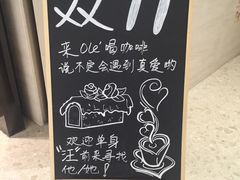 双11
来Olé喝咖啡
说不定会遇到真爱哟
欢迎单身
"汪"前来寻找
他/她!